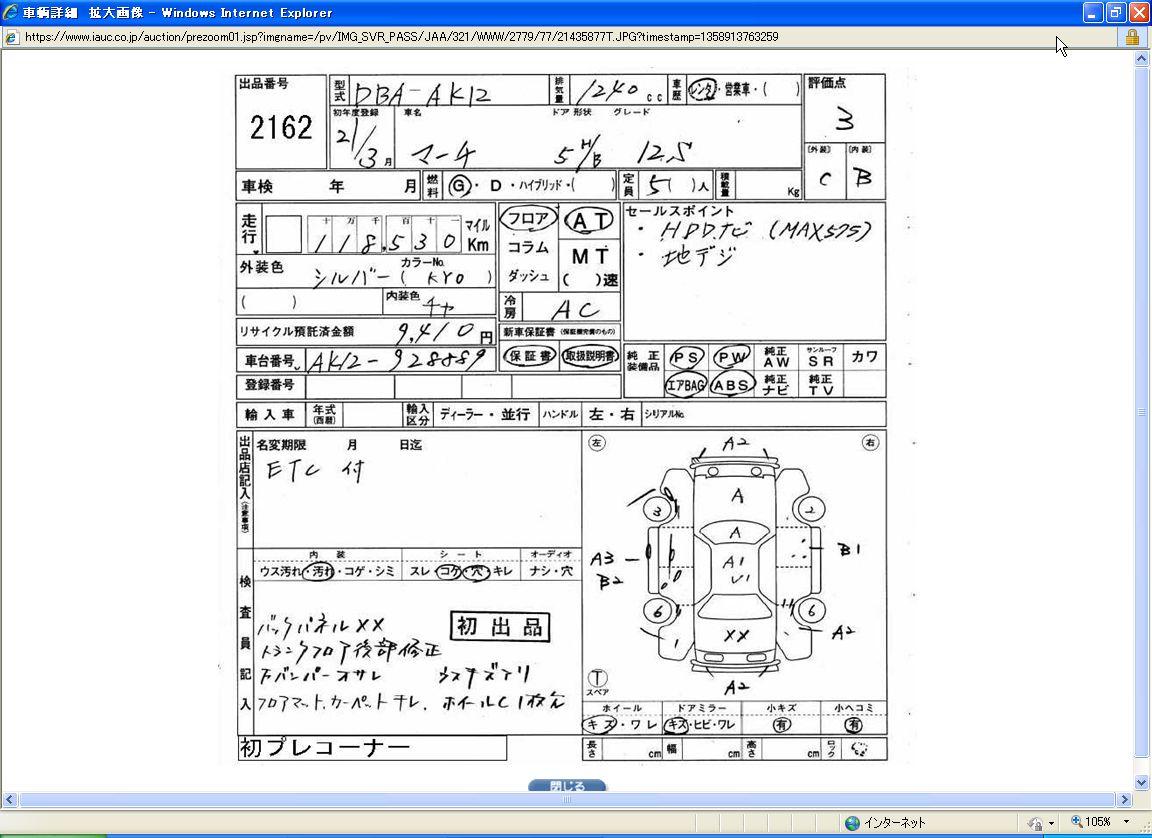 車輌詳細 拡大画像 - Windows Internet Explorer
https://www.iauc.co.jp/auction/prezoom01.jsp?imgname=/pv/IMG_SVR_PASS/JAA/321/WWW/2779/77/21435877T.JPG?timestamp=1358913763259
出品番号 2162
型式 DBA-AK12 排気量 1240 cc 車歴 レンタ・営業車・( )
評価点 3
初年度登録 21/3月 車名 マーチ ドア 形状 5 H/B グレード 12S
[外装] C [内装] B
車検 年 月 燃料 G・D・ハイブリッド・( ) 定員 5( )人 積載量 Kg
走行 十 万 千 百 十 一 118,530 マイル Km
フロア コラム ダッシュ
AT MT ( )速
セールスポイント
・HDDナビ (MAX575)
・地デジ
外装色 シルバー カラーNo. ( KY0 )
( ) 内装色 チャ
冷房 AC
リサイクル預託済金額 9,410 円
新車保証書 (保証継承書のもの)
車台番号 AK12-928889
保証書 取扱説明書
純正装備品 PS PW 純正AW サンルーフSR カワ
エアBAG ABS 純正ナビ 純正TV
登録番号
輸入車 年式(西暦) 輸入区分 ディーラー・並行 ハンドル 左・右 シリアルNo.
出品店記入(注意事項)
名変期限 月 日迄
ETC 付
内装 シート オーディオ
ウス汚れ・汚れ・コゲ・シミ スレ・コゲ・穴・キレ ナシ・穴
検査員記入
バックパネルXX
トランクフロア後部修正
初出品
フロアマット、カーペット
初プレコーナー
左 右
A2
A
3 2
A
A3 B2
A1
U1
B1
6 6
1 XX A2
A2
T スペア
ホイール ドアミラー 小キズ 小ヘコミ
キズ・ワレ キズ・ヒビ・ワレ 有 有
長さ cm 幅 cm 高さ cm ロック
閉じる
インターネット
105%